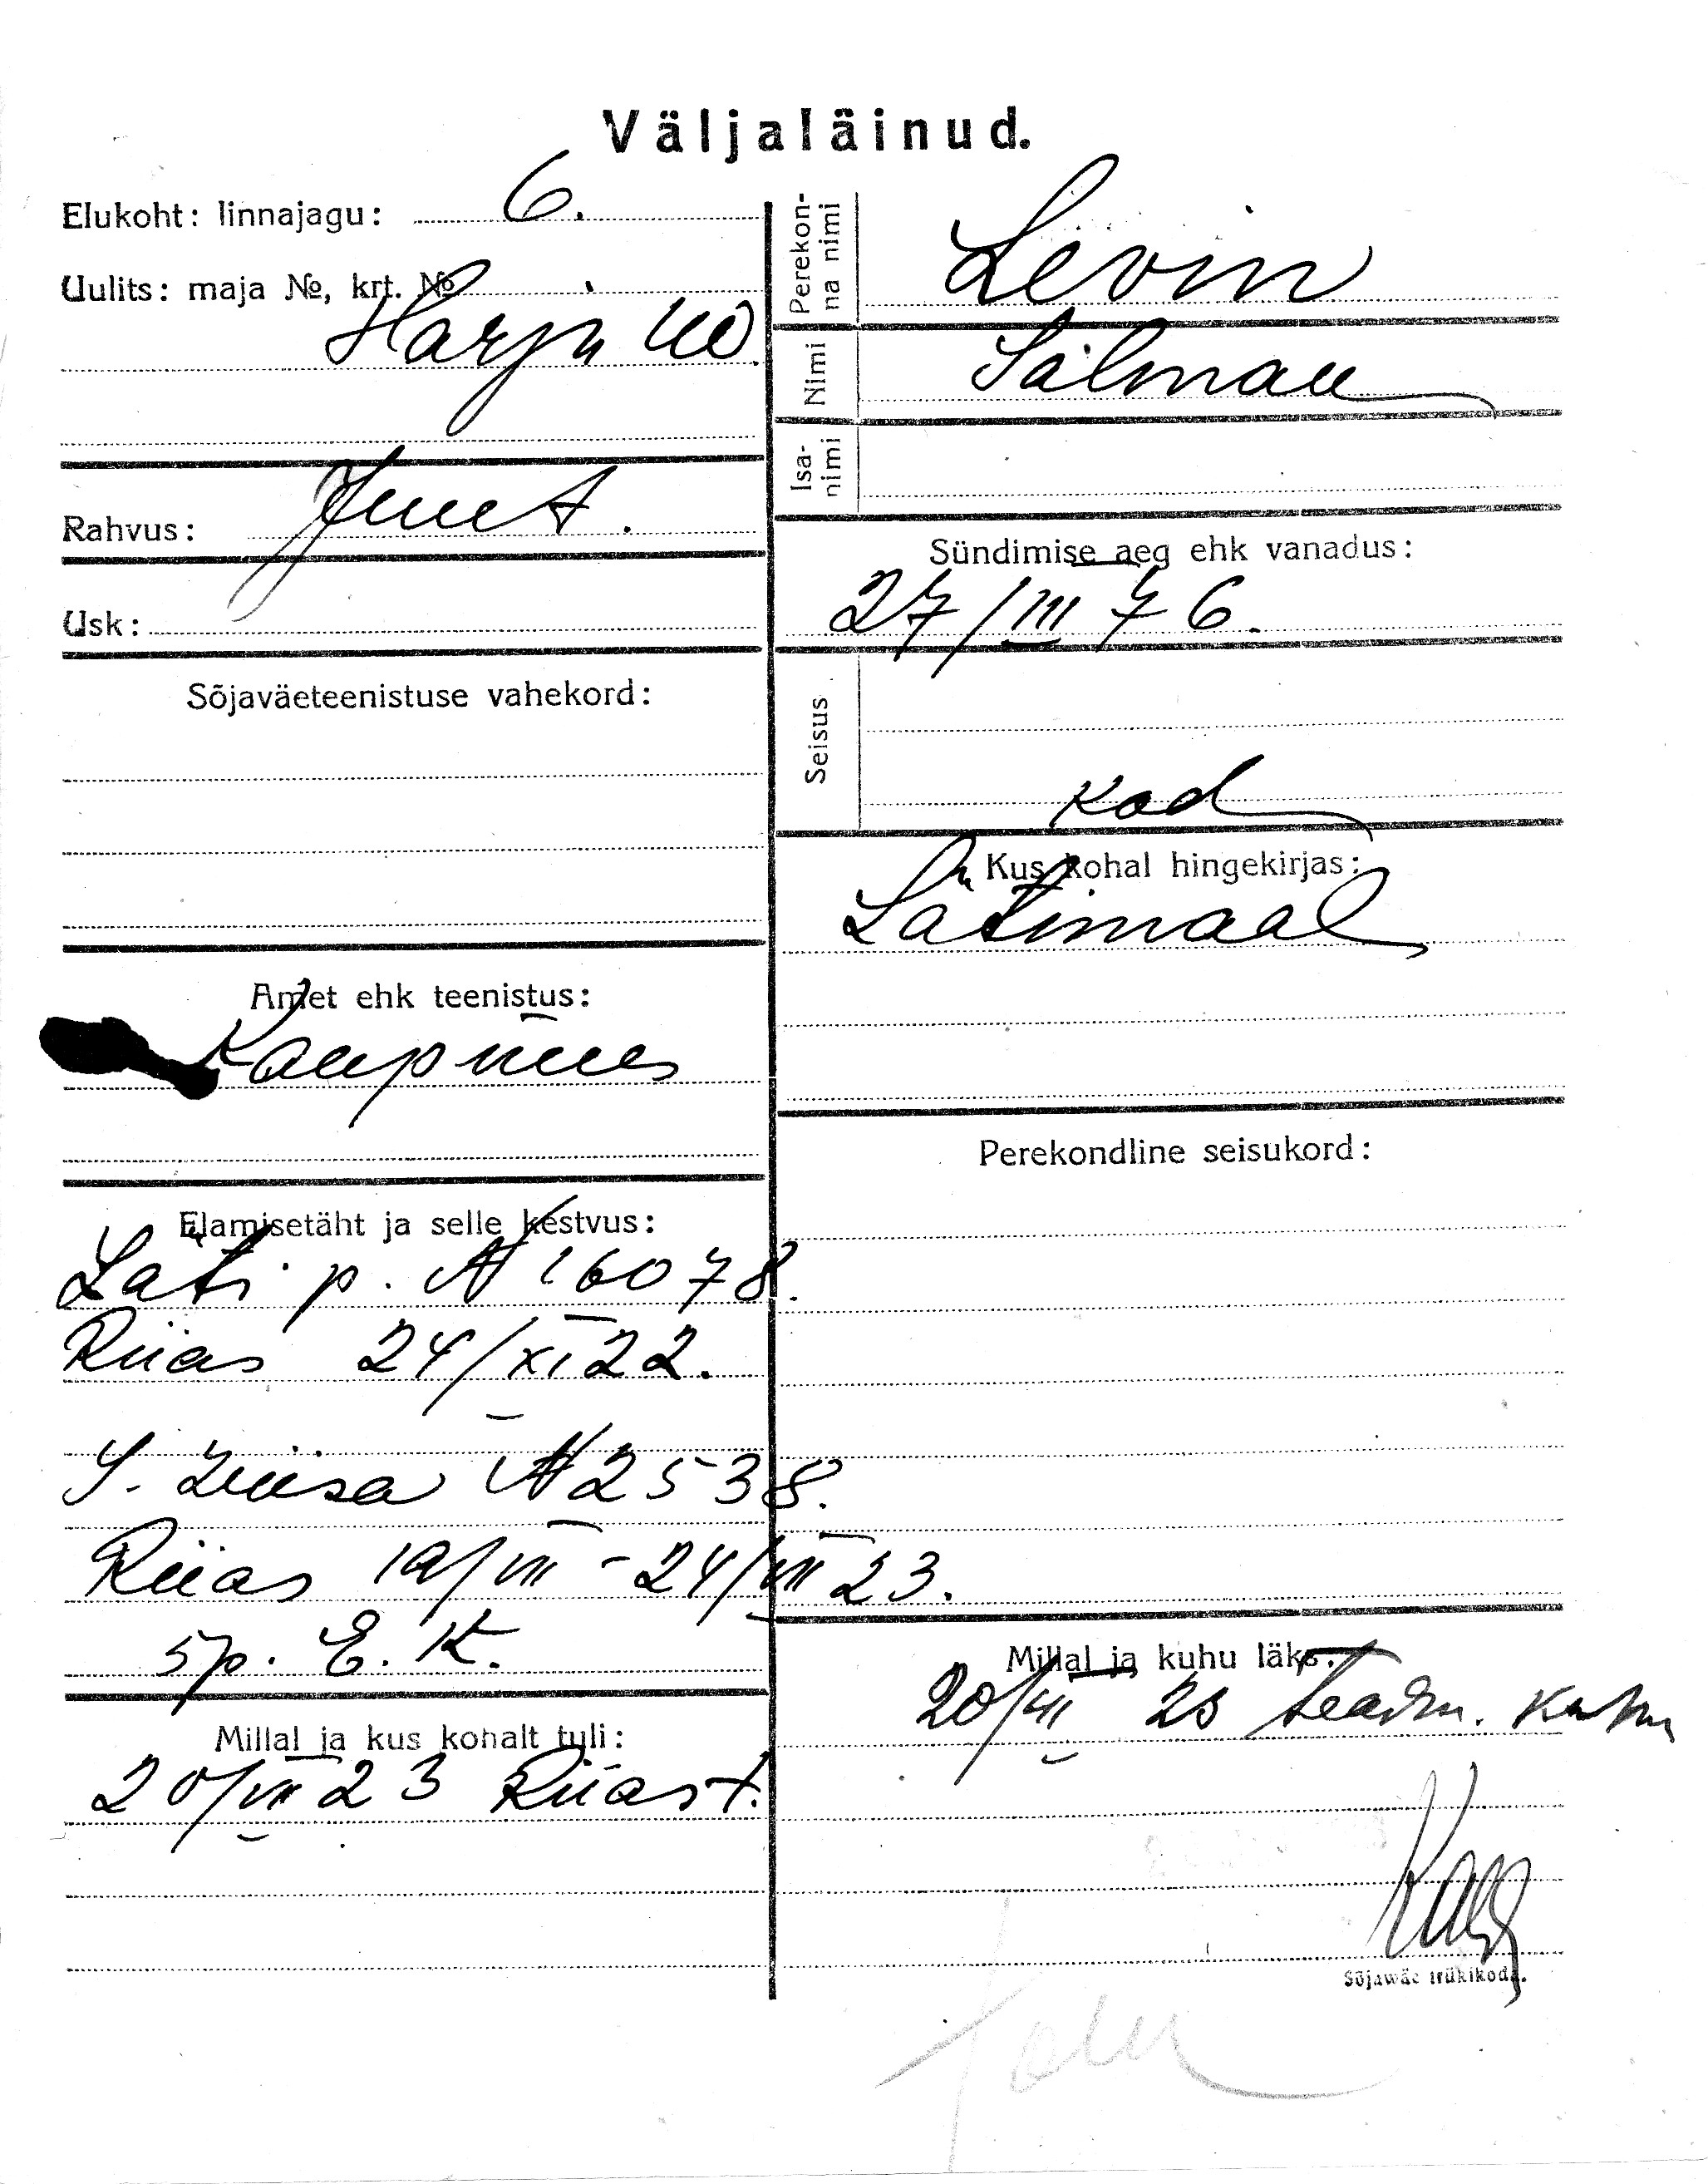 Väljaläinud.
Elukoht: linnajagu: 6.
Uulits: maja №, krt. №
Harju 40.
Rahvus: Juut.
Usk:
Sõjaväeteenistuse vahekord:
Amet ehk teenistus:
Kaupmees
Elamisetäht ja selle kestvus:
Läti p. № 16078.
Riias 24/XI 22.
S. Wiisa № 2538.
Riias 19/VII - 24/VII 23.
sp. E. K.
Millal ja kus kohalt tuli:
20/VII 23 Riiast.
Perekonna nimi
Levin
Nimi
Salman
Isanimi
Sündimise aeg ehk vanadus:
27/III 76.
Seisus
kod
Kus kohal hingekirjas:
Lätimaal
Perekondline seisukord:
Millal ja kuhu läks:
20/VII 23 teadm. kuhu
Sõjawäe trükikoda.